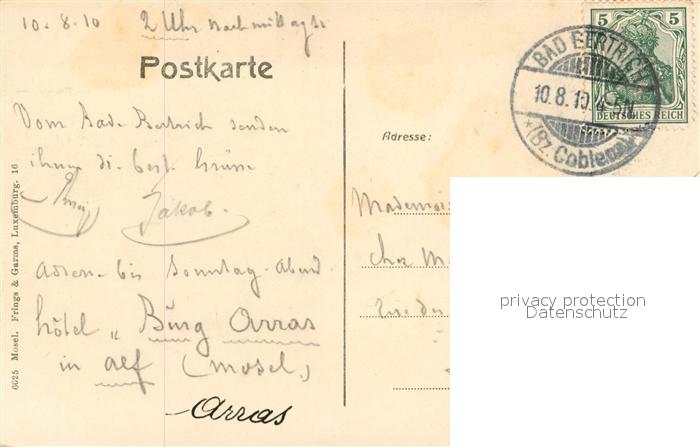 10.8.10 2 Uhr nachmittags
Postkarte
5 5
DEUTSCHES REICH
BAD BERTRICH
10.8.10.4-5N.
*(Bz. Coblenz)*
Vom Bade Bertrich senden
ihnen di. best. Grüsse
Jakob.
Adresse:
Mademois
chez M
Rue de
Adresse bis Sonntag-Abend
hôtel „ Burg Arras
in Alf (Mosel.)
Arras
6025 Mosel. Frings & Garms, Luxemburg. 16
privacy protection
Datenschutz